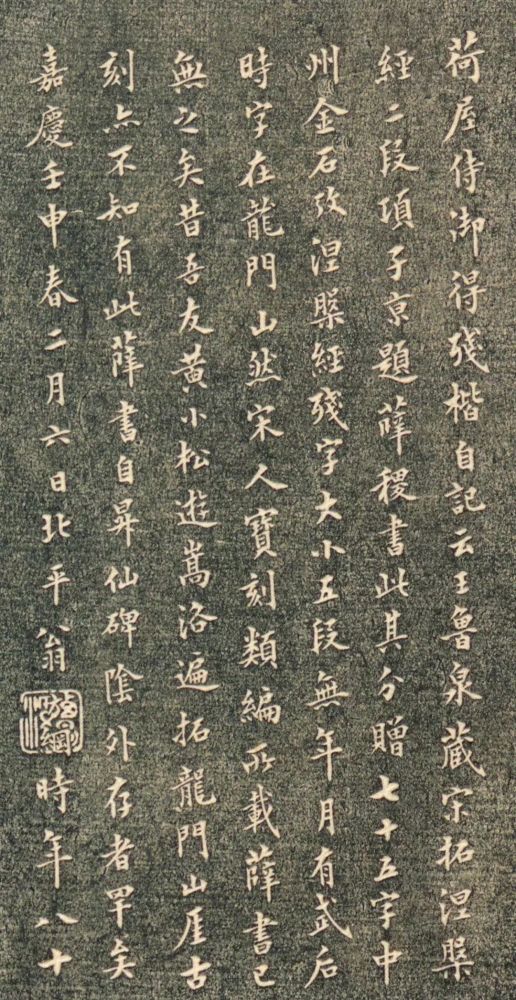 荷屋侍御得殘楷自記云王魯泉藏宋拓涅槃
經二段項子京題薛稷書此其分贈七十五字中
州金石攷涅槃經殘字大小五段無年月有武后
時字在龍門山然宋人寶刻類編所載薛書已
無之矣昔吾友黃小松遊嵩洛遍拓龍門山厓古
刻亦不知有此薛書自昇仙碑陰外存者罕矣
嘉慶壬申春二月六日北平翁
翁方綱
時年八十